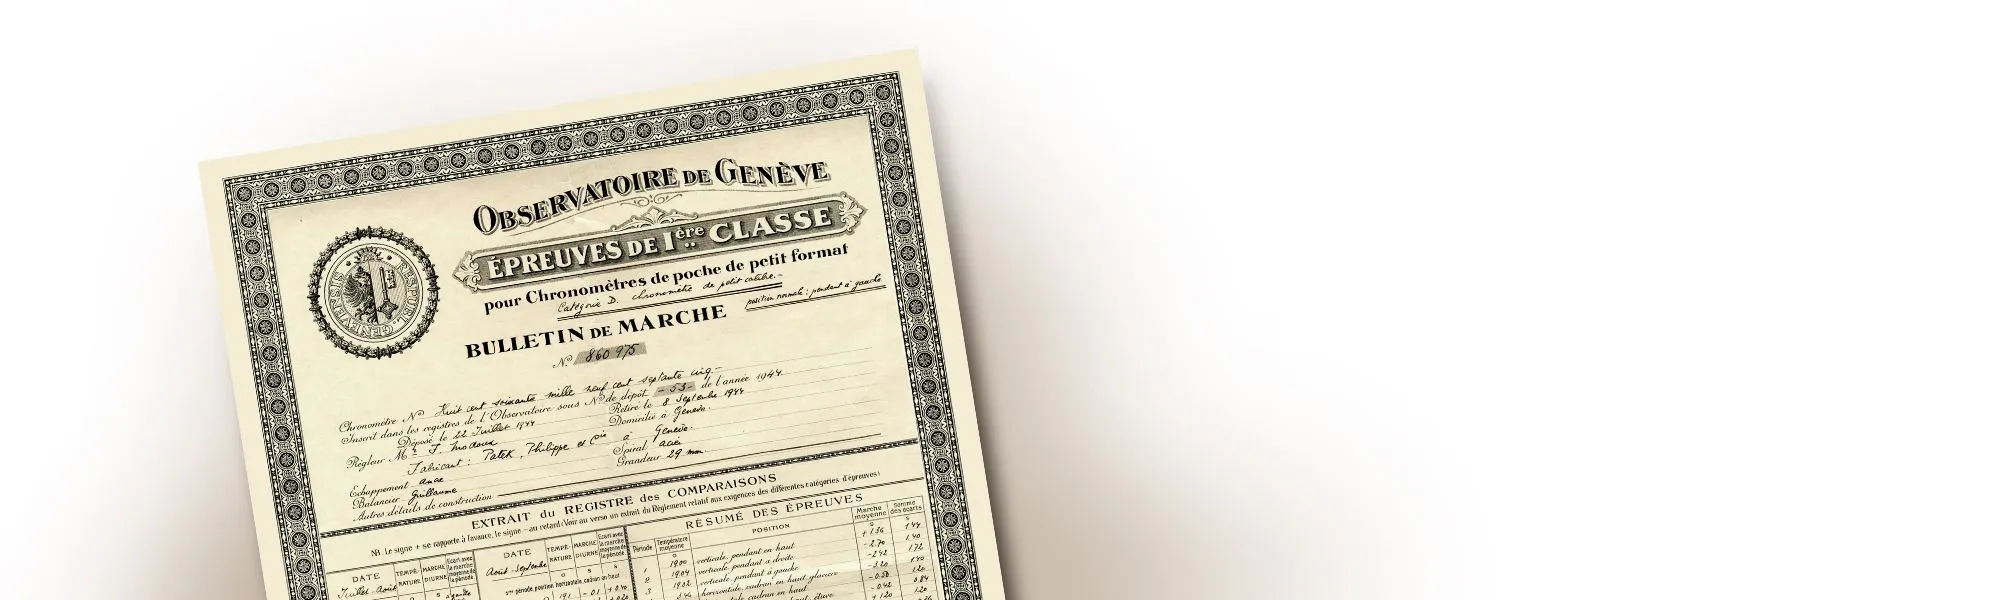 OBSERVATOIRE DE GENÈVE
ÉPREUVES DE Ière CLASSE
pour Chronomètres de poche de petit format
Catégorie D. chronomètre de petit calibre.-
position normale: pendant à gauche
BULLETIN DE MARCHE
No 860 975
Chronomètre No Huit cent soixante mille neuf cent septante cinq.-
Inscrit dans les registres de l'Observatoire sous No de dépôt -53- de l'année 1944.
Déposé le 22 Juillet 1944 Retiré le 8 Septembre 1944
Régleur Mr J. Domicilié à Genève.
Fabricant: Patek, Philippe et Cie à Genève.
Echappement ancre Spiral acier
Balancier Guillaume Grandeur 29 mm
Autres détails de construction
EXTRAIT du REGISTRE des COMPARAISONS
NB. Le signe + se rapporte à l'avance, le signe - au retard (Voir au verso un extrait du Règlement relatif aux exigences des différentes catégories d'épreuves)
DATE TEMPÉ-RATURE MARCHE DIURNE Ecart avec la marche moyenne de la période
Juillet-Août
DATE TEMPÉ-RATURE MARCHE DIURNE Ecart avec la marche moyenne de la période
Août-Septembre
5me période, position horizontale, cadran en haut
19,1 -0,1 +0,40
RÉSUMÉ DES ÉPREUVES
Période Température moyenne POSITION Marche moyenne Somme des écarts
1 19,00 verticale, pendant en haut +1,36 1,44
2 19,04 verticale, pendant à droite -2,70 1,40
3 19,02 verticale, pendant à gauche -2,42 1,72
horizontale, cadran en haut, glacière -3,20 1,40
cadran en haut -0,50 1,20
étuve -0,42 0,84
+1,20 1,20